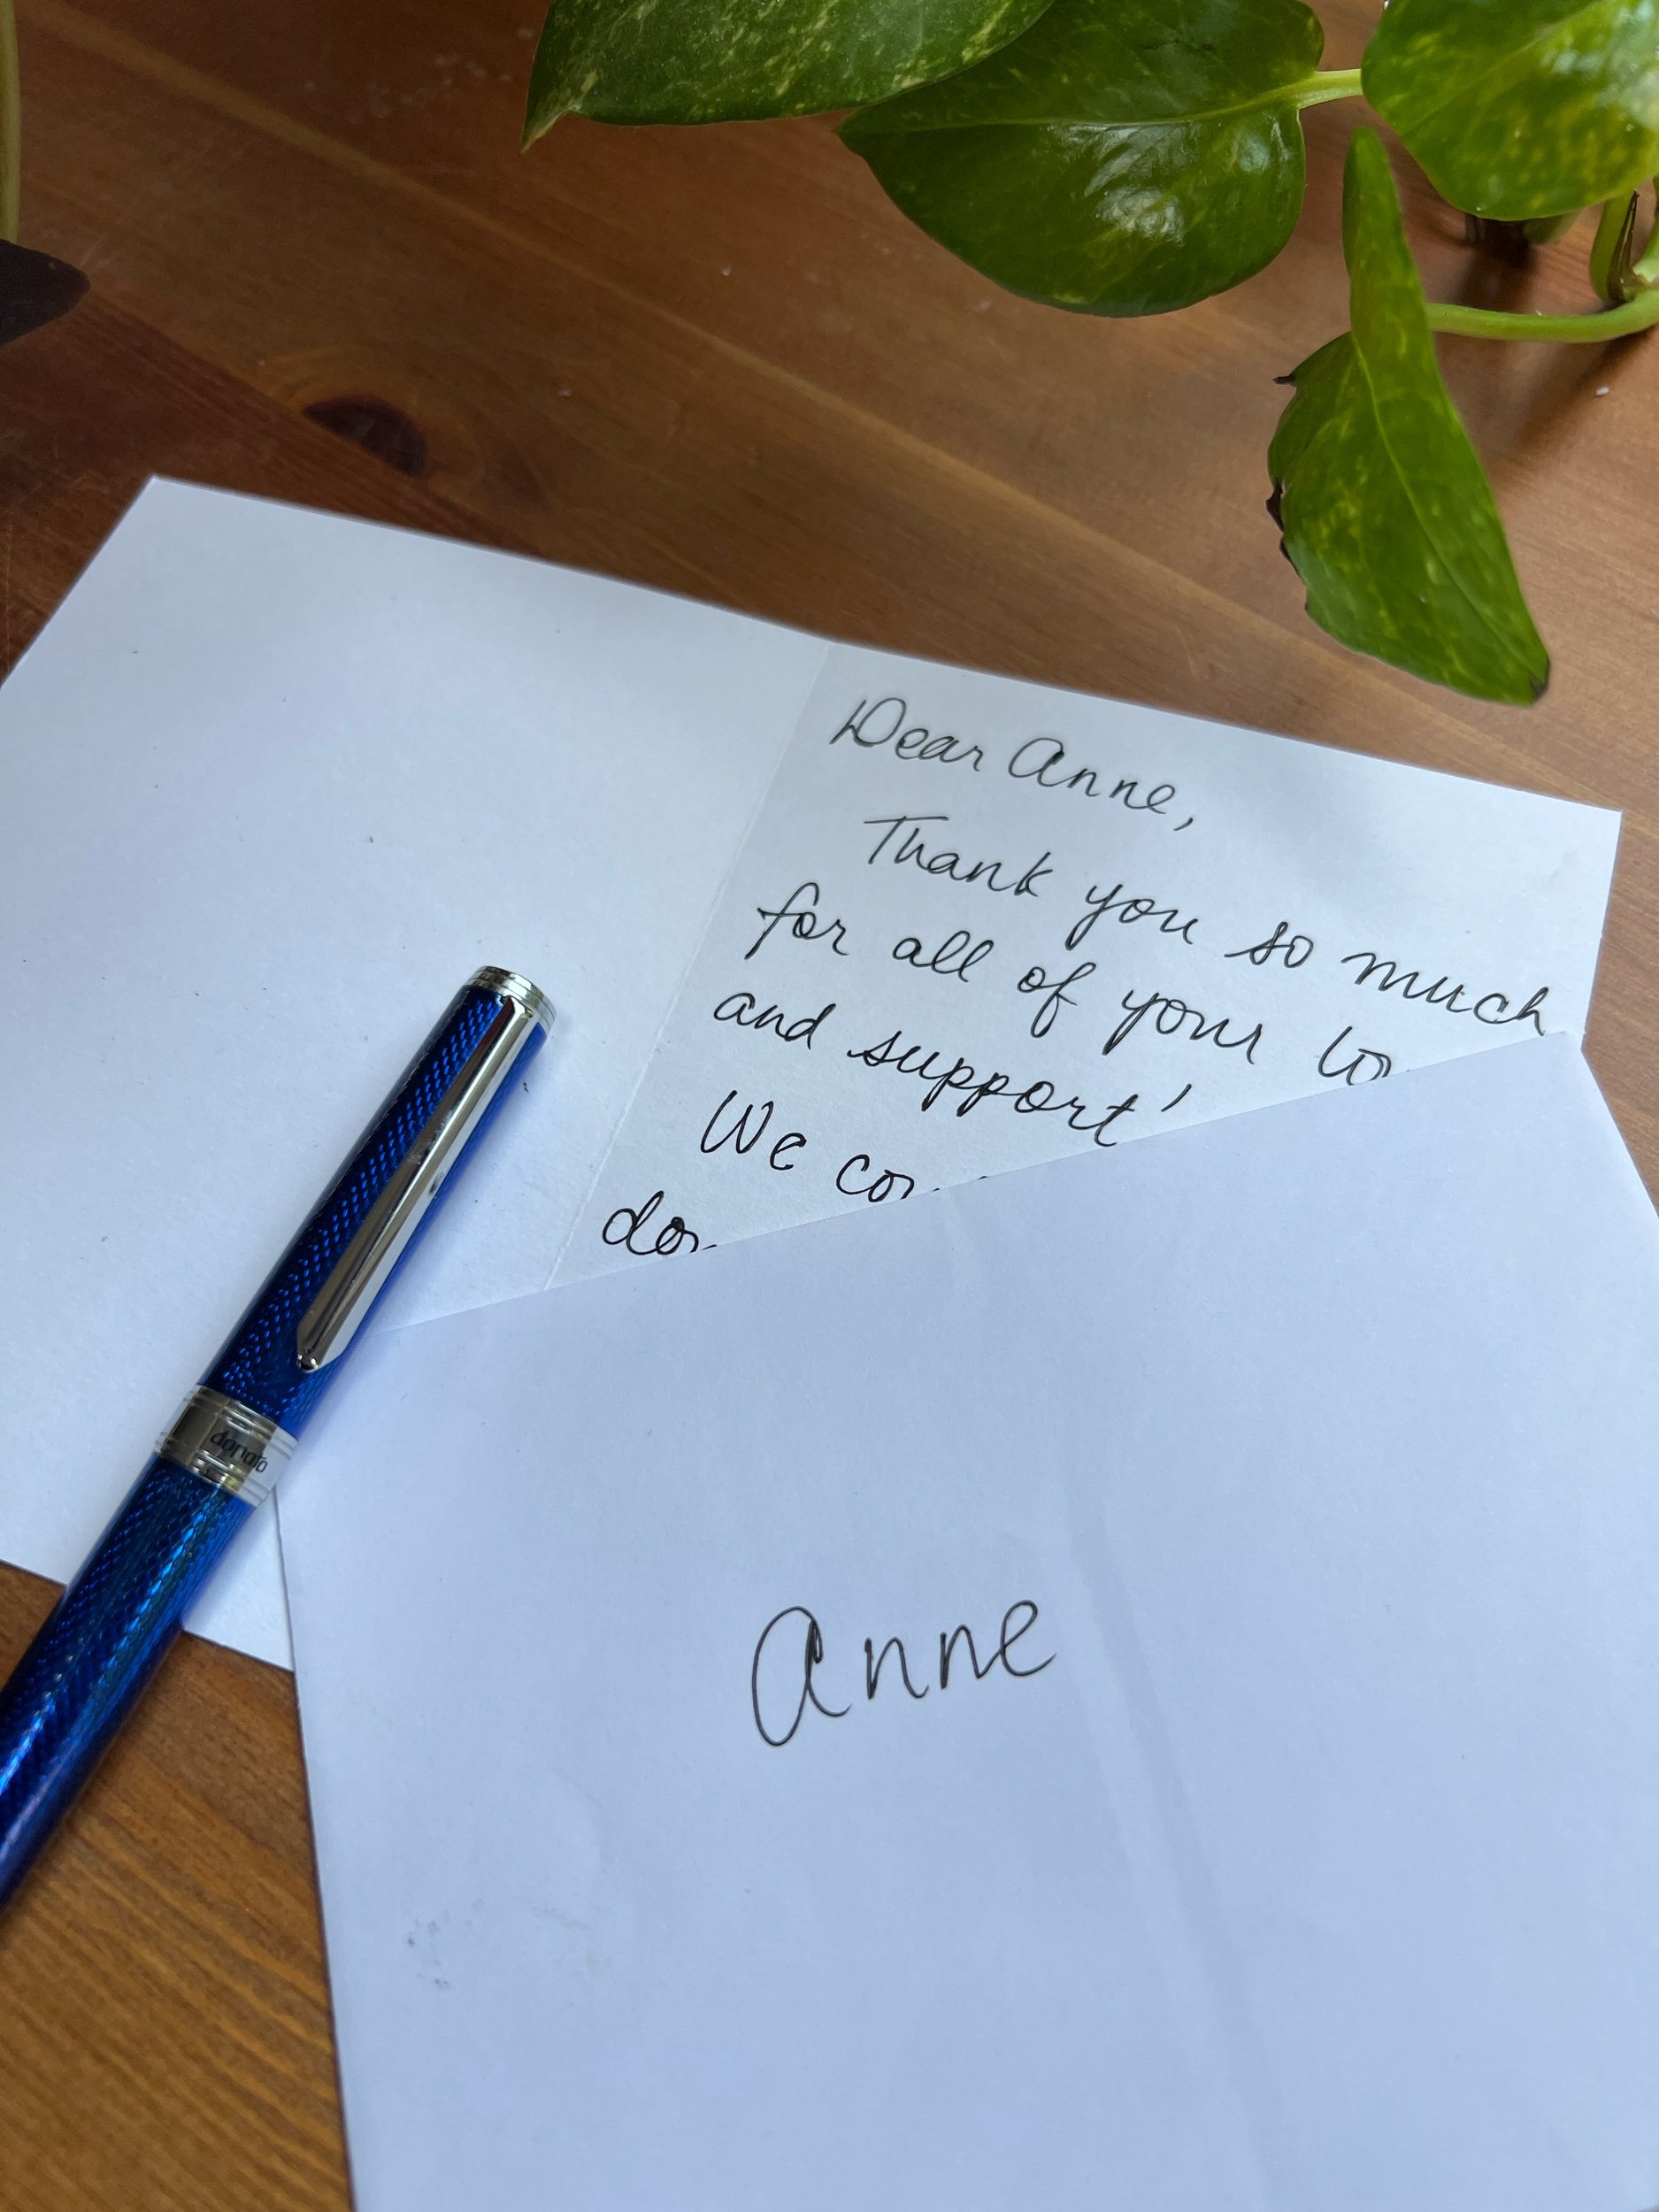 Dear Anne,
Thank you so much
for all of your
and support
We
Anne